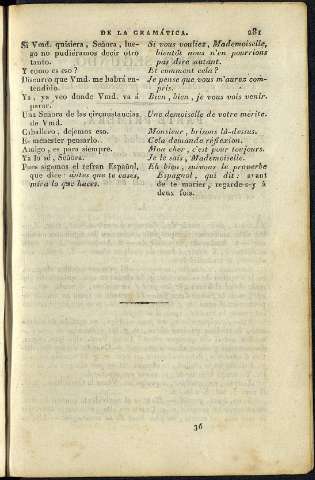 DE LA GRAMÁTICA. 281
Si Vmd. quisiera, Señora, lue-
go no pudiéramos decir otro
tanto.
Y como es eso?
Discurro que Vmd. me habrá en-
tendido.
Ya, ya veo donde Vmd. va á
parar.
Una Señora de las circunstancias
de Vmd.
Caballero, dejemos eso.
Es menester pensarlo.
Amigo, es para siempre.
Ya lo sé, Señora.
Pues sigamos el refran Español,
que dice: antes que te cases,
mira lo que haces.
Si vous vouliez, Mademoiselle,
bientôt nous n'en pourrions
pas dire autant.
Et comment cela?
Je pense que vous m'aurez com-
pris.
Bien, bien, je vous vois venir.
Une demoiselle de votre mérite.
Monsieur, brisons là-dessus.
Cela demande réflexion.
Mon cher, c'est pour toujours.
Je le sais, Mademoiselle.
Eh bien, suivons le proverbe
Espagnol, qui dit: avant
de te marier, regarde-s-y à
deux fois.
36